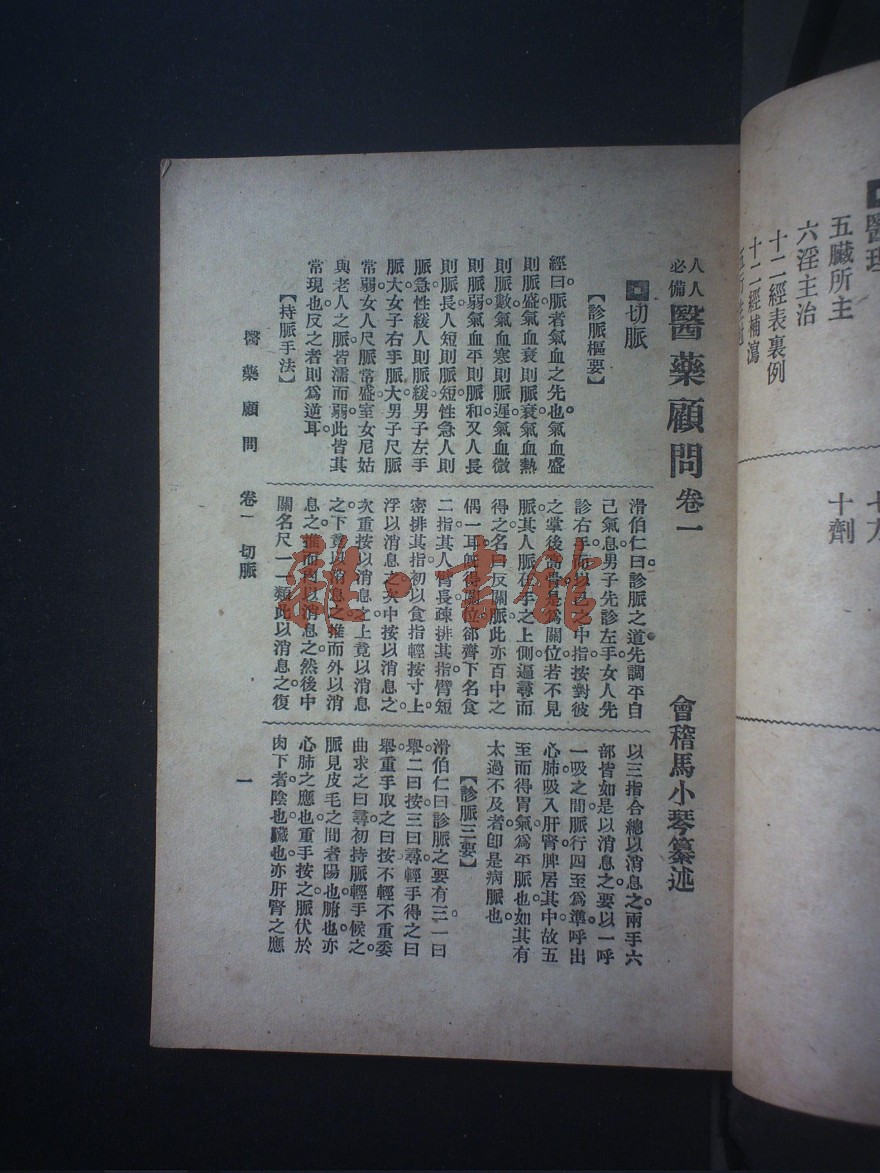 人人必備醫藥顧問卷一
會稽馬小琴纂述
切脈
【診脈樞要】
經曰。脈者氣血之先也。氣血盛
則脈盛。氣血衰則脈衰。氣血熱
則脈數。氣血寒則脈遲。氣血微
則脈弱。氣血平則脈和。又人長
則脈長。人短則脈短。性急人則
脈急。性緩人則脈緩。男子左手
脈大。女子右手脈大。男子尺脈
常弱。女人尺脈常盛。室女尼姑
與老人之脈。皆濡而弱。此皆其
常現也。反之者則爲逆耳。
【持脈手法】
滑伯仁曰。診脈之道。先調平自
己氣息。男子先診左手。女人先
診右手。而以己之中指。按對彼
之掌後高骨。是爲關位。若不見
脈。其人脈在手之上側。逼尋而
得之。名曰反關脈。此亦百中之
偶一耳。既得關位。卻齊下名食
二指。其人臂長疎排其指。臂短
密排其指。初以食指輕按寸上。
浮以消息之。次中按以消息之。
次重按以消息之。上竟以消息
之。下竟以消息之。推而外以消
息之。推而內以消息之。然後中
關名尺。一一類此以消息之。復
以三指合總以消息之。兩手六
部皆如是以消息之。要以一呼
一吸之間。脈行四至爲準。呼出
心肺。吸入肝腎。脾居其中。故五
至而得胃氣。爲平脈也。如其有
太過不及者。卽是病脈也。
【診脈三要】
滑伯仁曰。診脈之要有三。一曰
舉。二曰按。三曰尋。輕手得之曰
舉。重手取之曰按。不輕不重。委
曲求之曰尋。初持脈輕手候之。
脈見皮毛之間者。陽也。腑也。亦
心肺之應也。重手按之。脈伏於
肉下者。陰也。臟也。亦肝腎之應
醫藥顧問 卷一 切脈 一
醫理
五臟所主
六淫主治
十二經表裏例
十二經補瀉
十劑
雜·書館